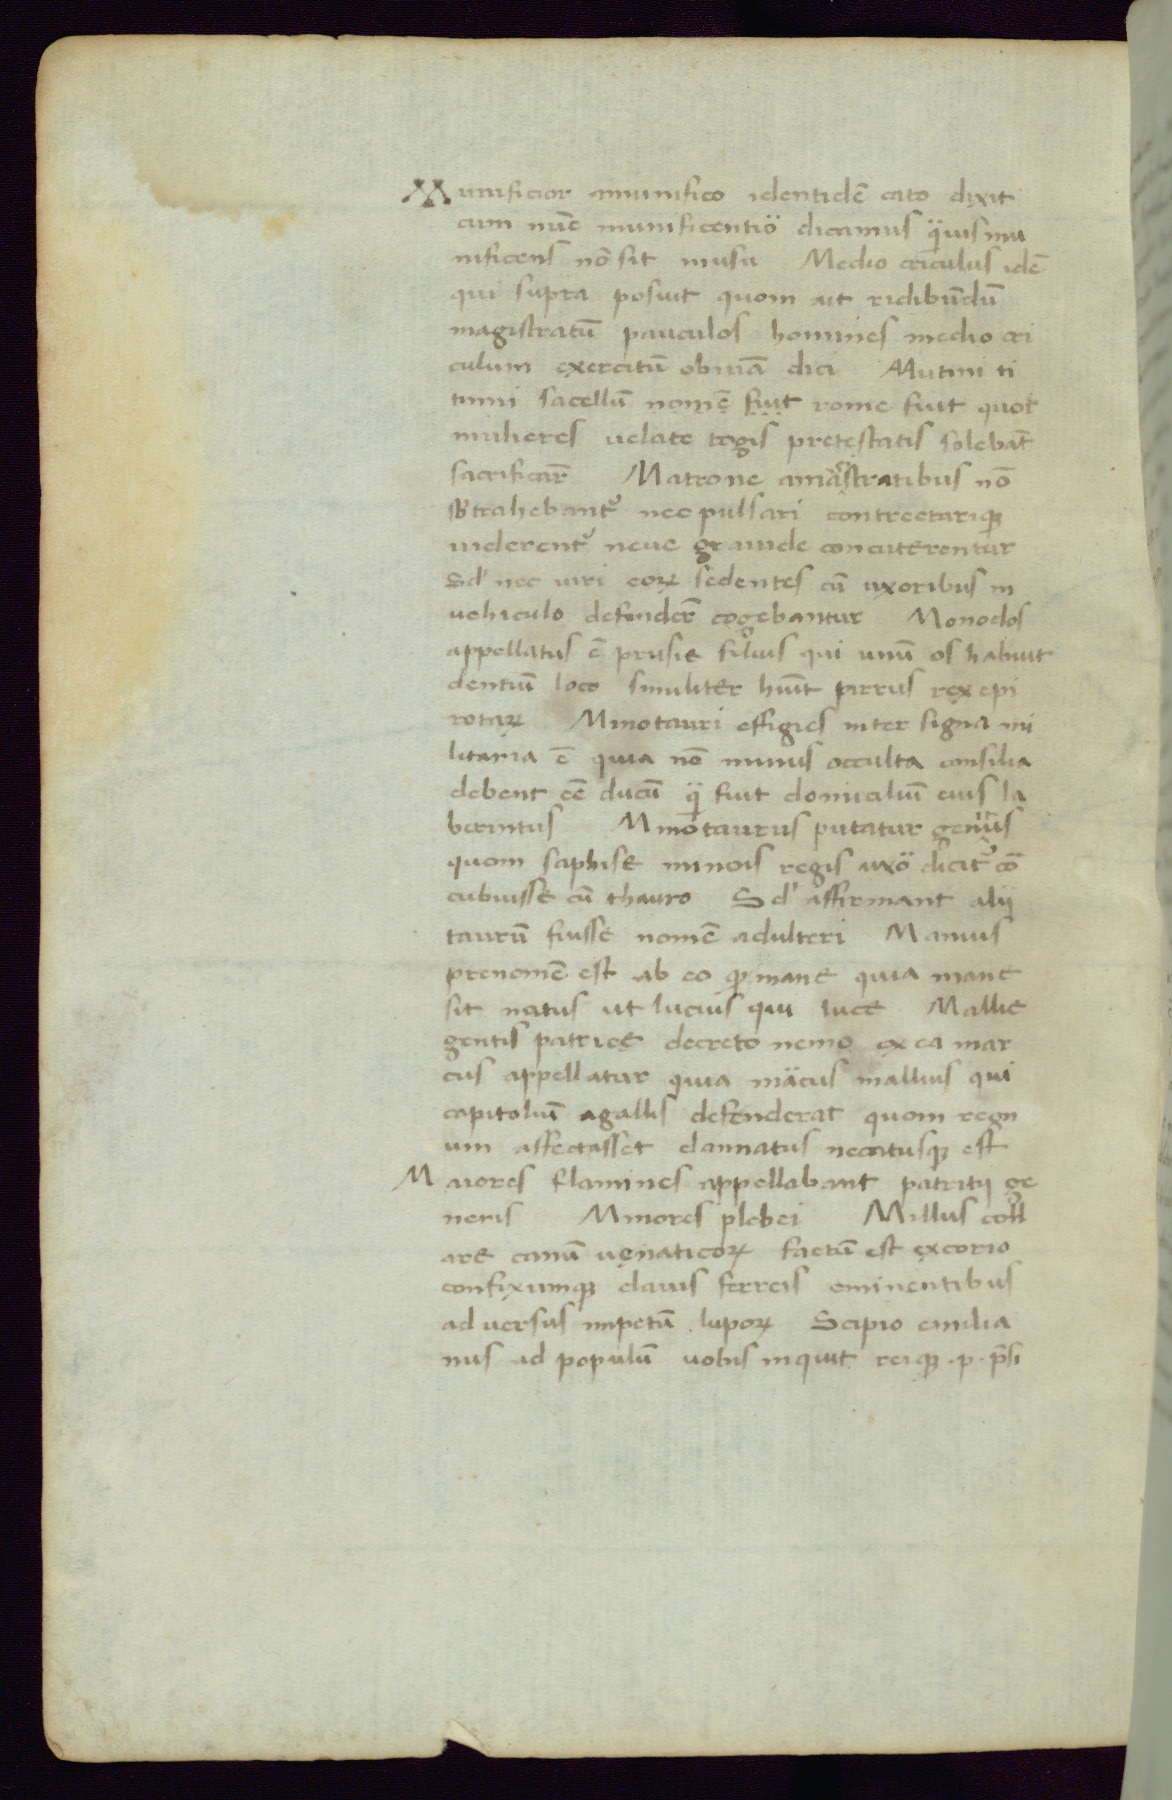 Munificior amunifico identidē cato dixit
cum nūc munificentiō dicamus q̄uis mu
nificens nō sit inusu Medio criculus idē
qui supra posuit quom ait ridibūdū
magistratū pauculos homines medio cri
culum exercitū obuiā dici Mutini ti
tinni sacellū nomē fiut rome fuit quoi
mulieres uelate togis pretestatis solebāt
sacrificar̄ Matrone amagr̄stratibus nō
sb̄trahebant᷑ nec pulsari contrectariqꝫ
uiderent᷑ neue grauide concuterentur
Sd' nec uiri eoꝝ sedentes cū uxoribus in
uehiculo defender̄ cogebantur Monodos
appellatus ē prusie filius qui unū os habuit
dentiū loco similiter huīt pirrus rex epi
rotaꝝ Minotauri effigies inter signa mi
litaria ē quia nō minus occulta consilia
debent eē ducū q̄ fuit domicilium eius la
berintus Minotaurus putatur genitus
quom saphise minois regis uxō dicit᷑ cō
cubuisse cū thauro Sd' affirmant alij
taurū fiusse nomē adulteri Manius
prenomē est ab eo qꝫ mane quia mane
sit natus ut lucius qui luce Mallie
gentis patrice decreto nemo ex ea mar
cus appellatur quia mäcus mallius qui
capitoliū agallis defenderat quom regn
um affectasset damnatus necatusqꝫ est
Maiores flamines appellabant patritij ge
neris Minores plebei Millus coll
are canū uenaticoꝝ factū est excorio
confixumqꝫ clauis ferreis eminentibus
aduersus impetū lupoꝝ Scipio emilia
nus ad populū uobis inquit reiqꝫ .p. p̄si